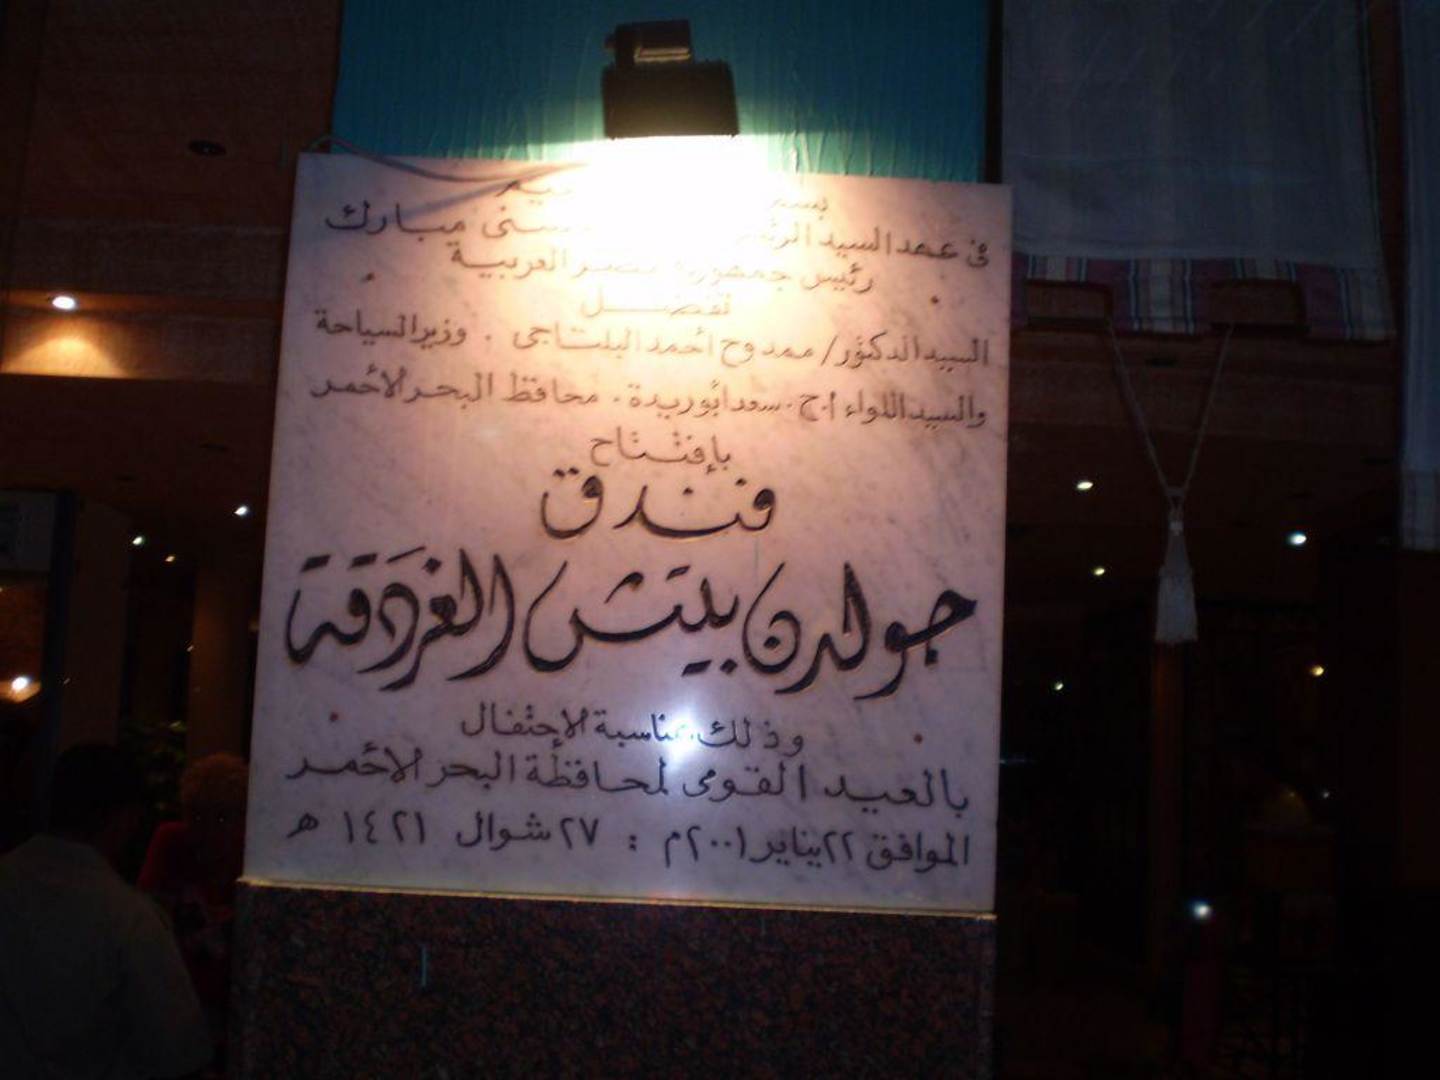 في عهد السيد مبارك
رئيس جمهورية مصر العربية
تفضل
السيد الدكتور/ ممدوح أحمد البلتاجى . وزير السياحة
والسيد اللواء أ.ح. سعد أبو ريدة . محافظ البحر الأحمر
بإفتتاح
فندق
جولدن بيتش الغردقة
وذلك بمناسبة الإحتفال
بالعيد القومى لمحافظة البحر الأحمر
الموافق ٢٢ يناير ٢٠٠١م : ٢٧ شوال ١٤٢١ هـ